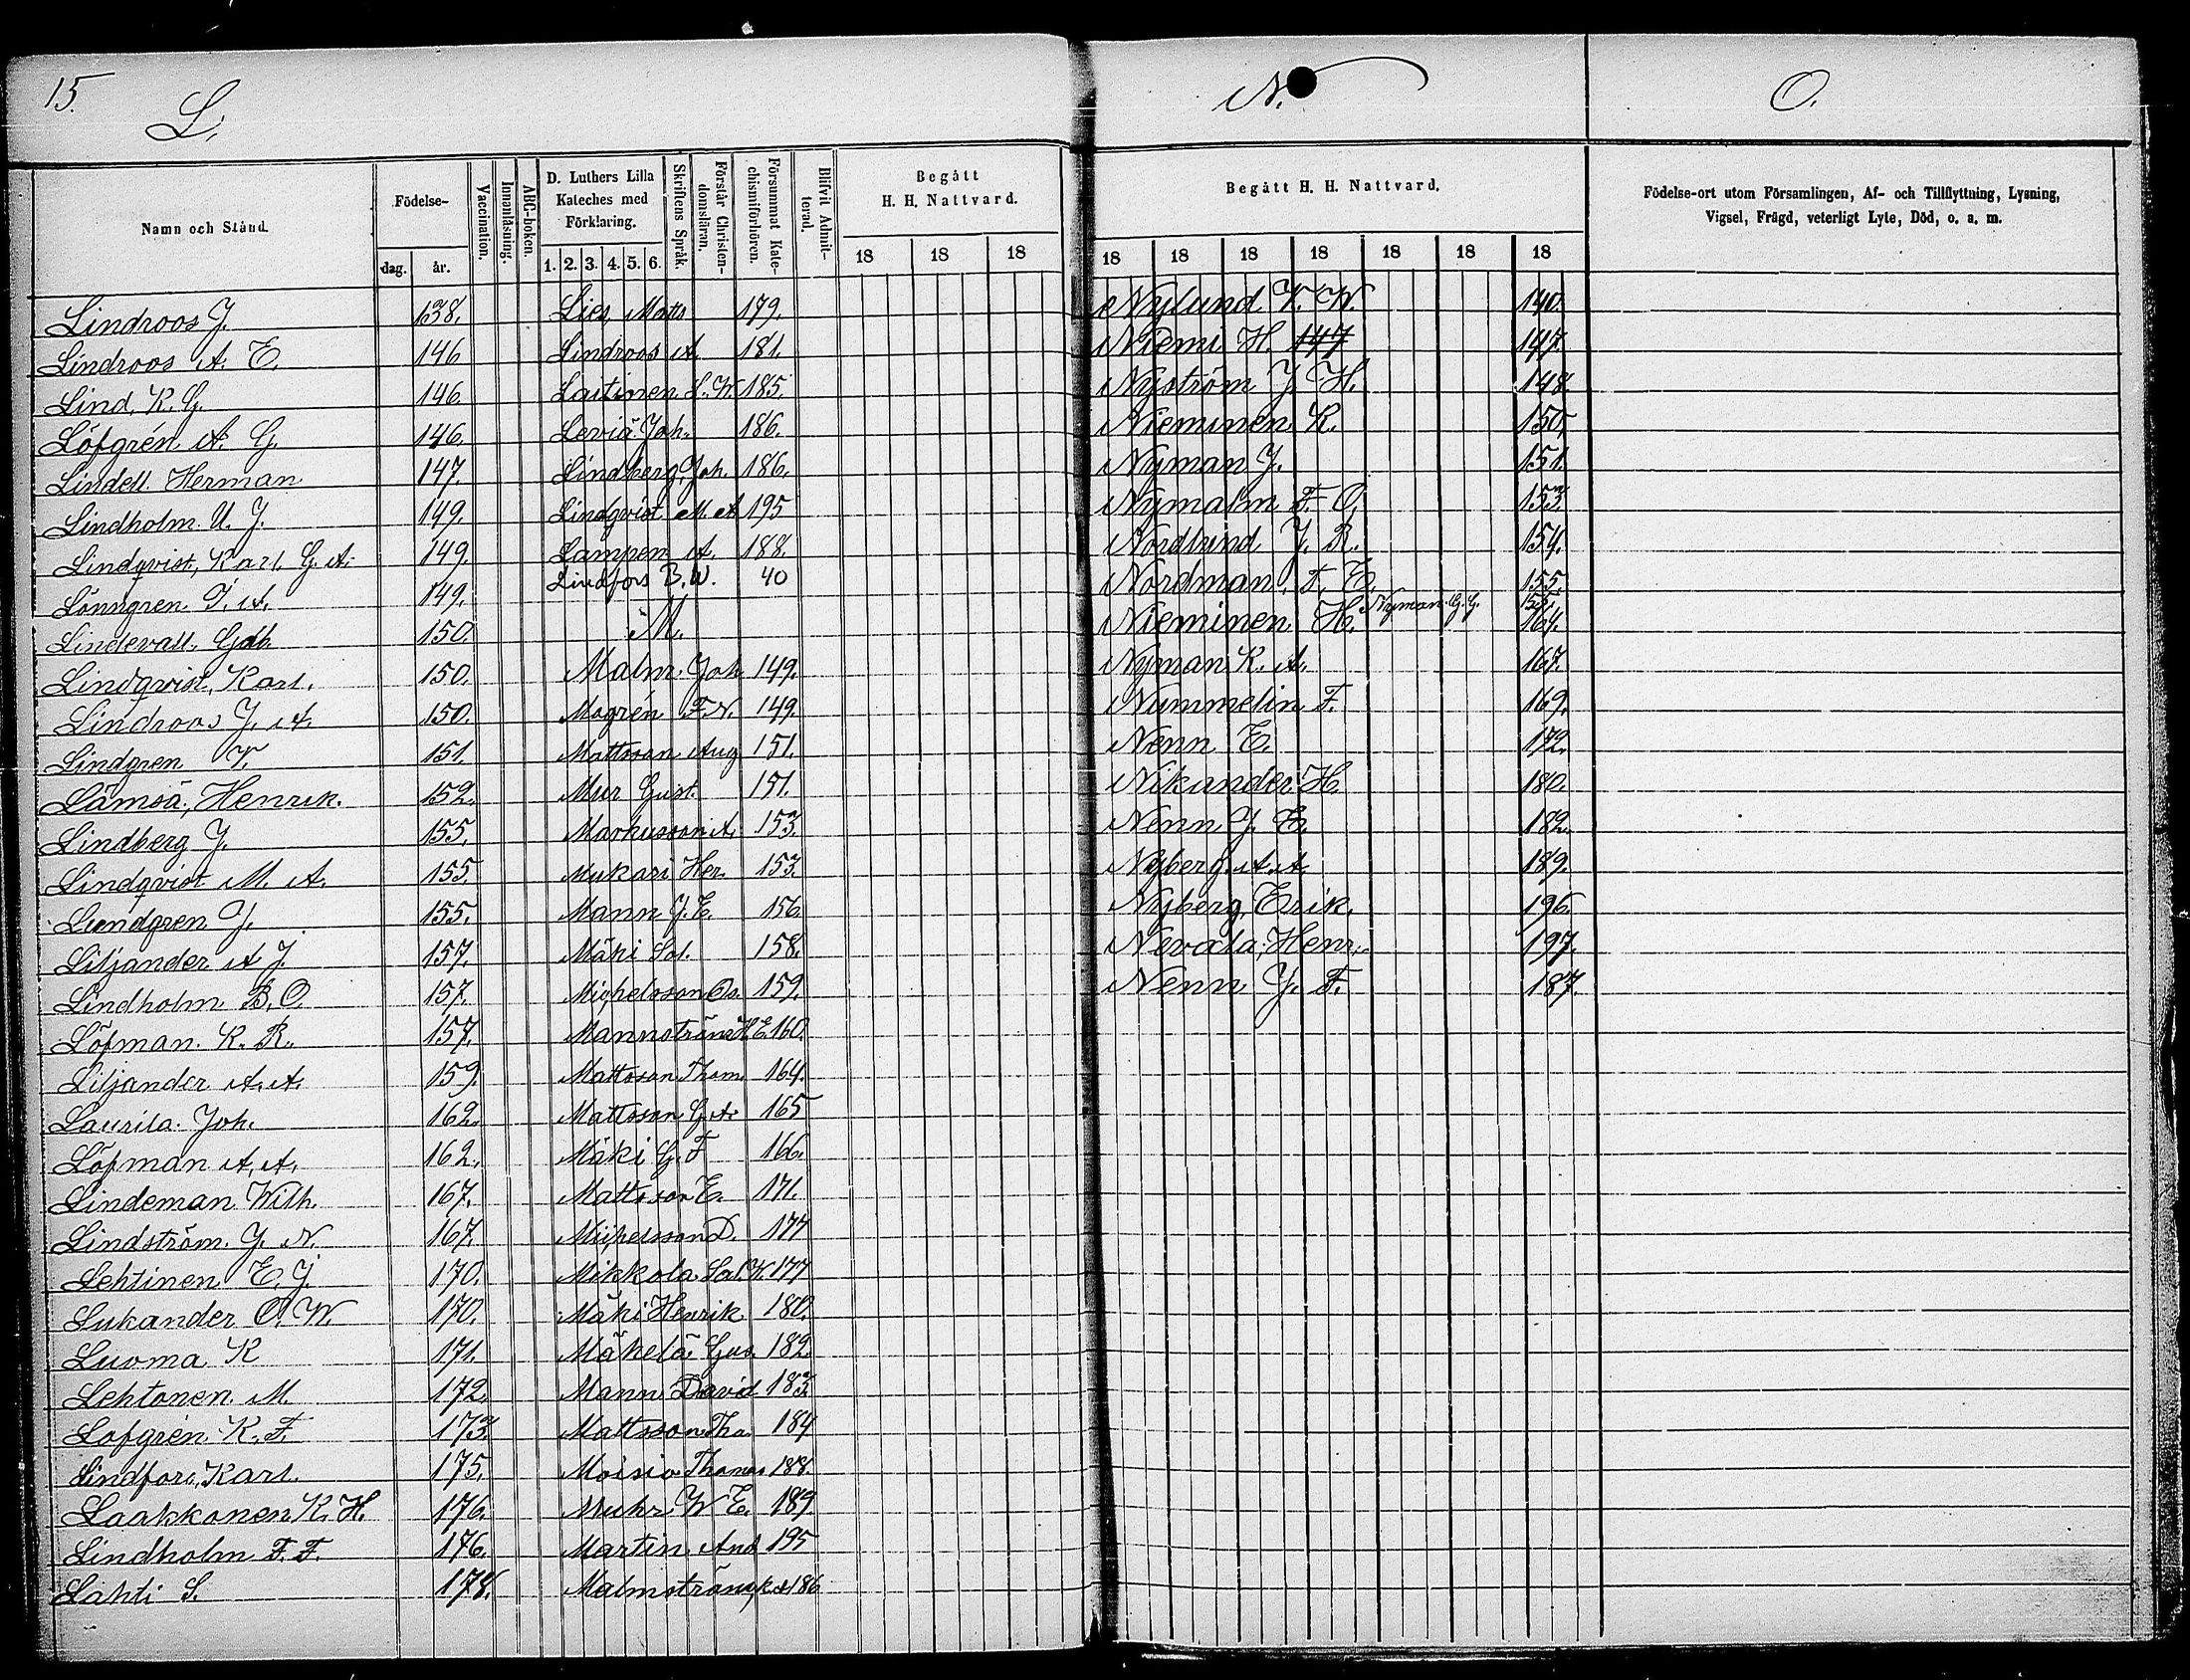 15.
L.
Namn och Stånd.
Födelse-
dag.
år.
Vaccination.
Innanläsning.
ABC-boken.
D. Luthers Lilla
Kateches med
Förklaring.
1. 2. 3. 4. 5. 6.
Skriftens Språk.
Förstår Christen-
domsläran.
Försummat Kate-
chismiförhören.
Blifvit Admit-
terad.
Begått
H. H. Nattvard.
18 18 18
Lindroos J. 138.
Lindroos A. E. 146
Lind, K. G. 146
Löfgrén A. G. 146.
Lindell Herman 147.
Lindholm U. J. 149.
Lindqvist, Karl. G. A. 149.
Lönngren J. A. 149.
Lindevall, Gdb. 150.
Lindqvist, Karl. 150.
Lindroos J. A. 150.
Lindgren V. 151.
Lämsä, Henrik. 152.
Lindberg J. 155.
Lindqvist M. A. 155.
Lundgren J. 155.
Liljander A J. 157.
Lindholm B. O. 157.
Löfman. K. R. 157.
Liljander A. A. 159.
Laurila Joh. 162.
Löfman A. A. 162.
Lindeman Wilh. 167.
Lindström. J. N. 167.
Lehtinen E. J. 170.
Lukander O. W. 170.
Luoma K 171.
Lehtonen M. 172.
Löfgrén K. F. 173.
Lindfors, Karl. 175.
Laakkonen K. H. 176.
Lindholm F. F. 176.
Lahti S. 178.
Lies, Matts 179.
Lindroos A. 181.
Laitinen S. W. 185.
Leviä Joh. 186.
Lindberg, Joh. 186.
Lindqvist M. A 195
Lampen A. 188.
Lindfors B. W. 40
M.
Malm Joh 149.
Mogrén F. N. 149.
Mattsson Aug 151.
Mur Gust. 151.
Markusson A. 153.
Mukari Her. 153.
Mann J. E. 156.
Mäki Sal. 158.
Michelsson Os. 159.
Mannström H E 160.
Mattsson Thom. 164.
Mattsson G. A. 165
Mäki G. F 166.
Mattsson E. 171.
Michelsson D. 177
Mikkola Sal. K. 177
Mäki Henrik 180.
Mäkelä Gus. 182.
Mann David 183.
Mattsson Tho. 184
Moisio Thomas 188.
Muhr W E. 189.
Martin And 195
Malmström, K A 186
N.
Begått H. H. Nattvard.
18 18 18 18 18 18 18
Nylund K. W. 140.
Niemi H. 147 147.
Nyström J. H. 148.
Nieminen K. 150.
Nyman J. 151.
Nymalm F. O. 153.
Nordlund J. R. 154.
Nordman, F. E. 155.
Nyman G. G. 155.
Nieminen H. 164.
Nyman K. A. 167.
Nummelin F. 169.
Nenn E. 172.
Nikander H. 180.
Nenn J. E. 182.
Nyberg A. A. 189.
Nyberg, Erik. 196.
Nevala, Henr. 197.
Nenn J. F. 187.
O.
Födelse-ort utom Församlingen, Af- och Tillflyttning, Lysning,
Vigsel, Frägd, veterligt Lyte, Död, o. a. m.